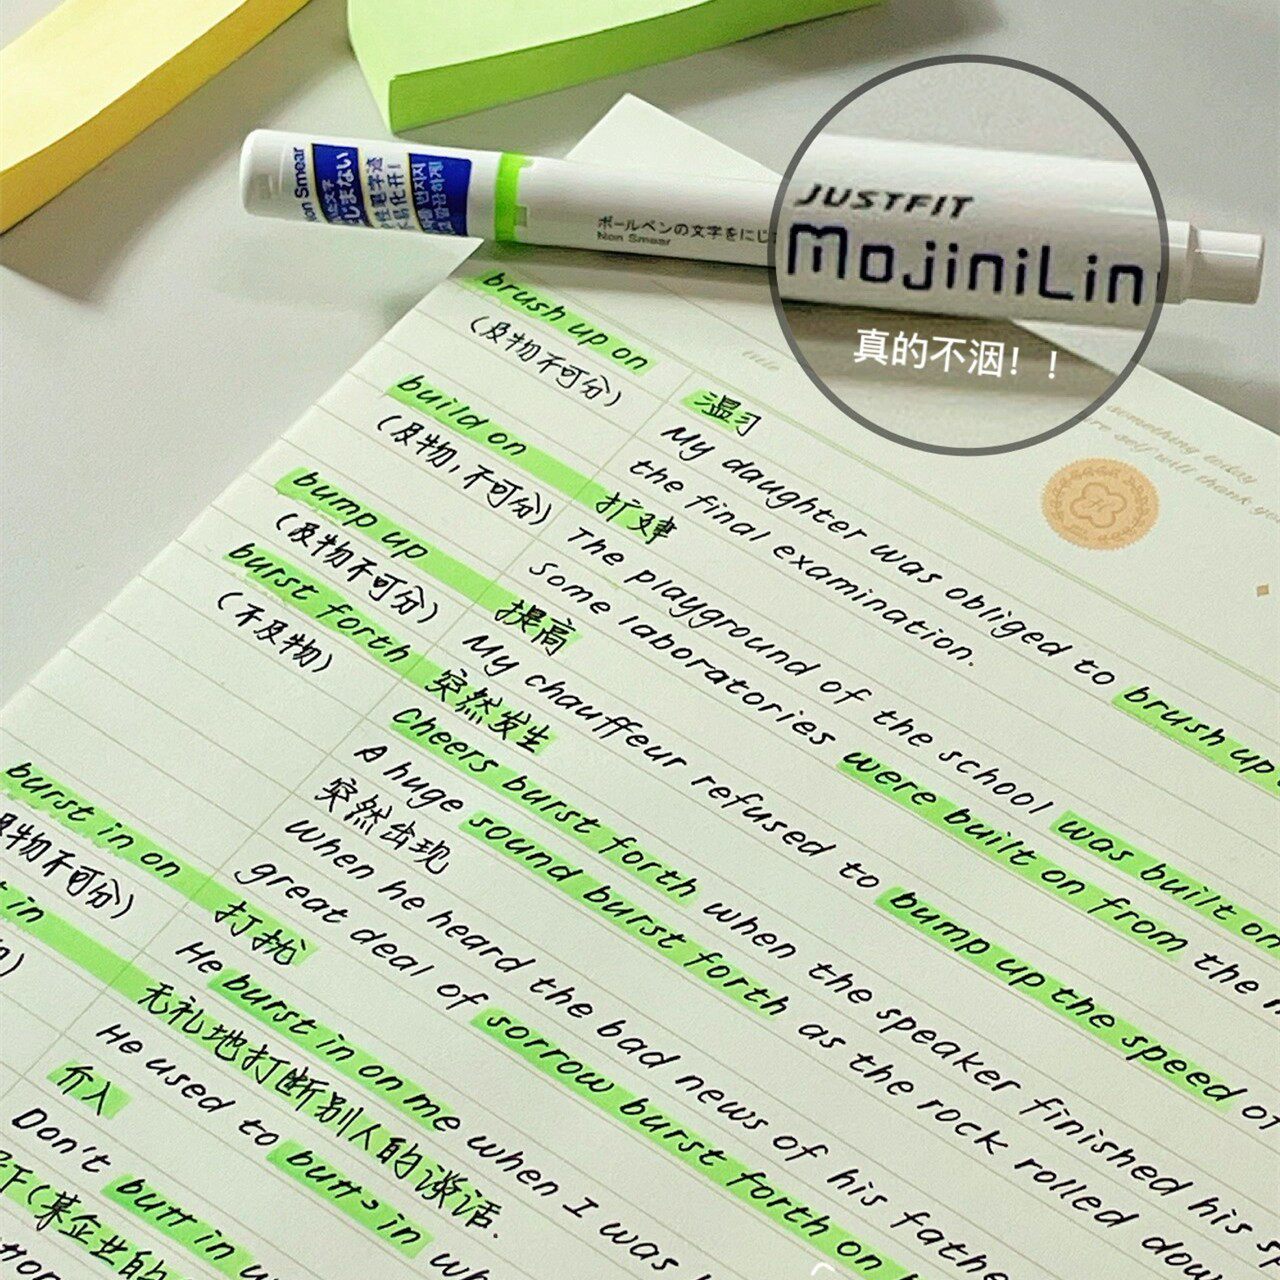 Non Smear
にじまない
性笔字迹
易化开!
ボールペンの文字をにじ
Non Smear
JUSTFIT
MojiniLin
真的不洇！！
title
something today
self will thank
brush up on
(及物不可分)
温习
My daughter was obliged to brush up
the final examination.
build on
(及物,不可分)
扩建
The playground of the school was built on
some laboratories were built on from the
bump up
(及物不可分)
提高
My chauffeur refused to bump up the speed of
burst forth
(不及物)
突然发生
Cheers burst forth when the speaker finished his
A huge sound burst forth as the rock rolled down
突然出现
When he heard the bad news of his father
great deal of sorrow burst forth on
burst in on
及物不可分)
打扰
He burst in on me when I was
in
无礼地打断别人的谈话.
He used to butts in
介入
Don't butt in
(某企业的